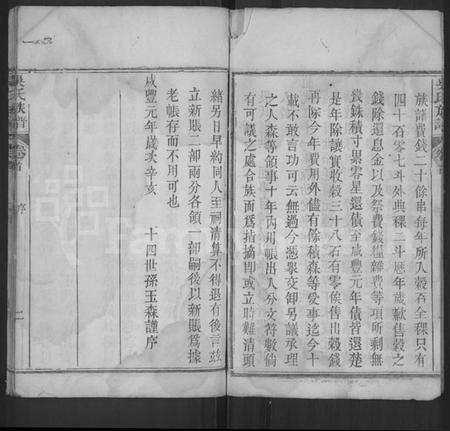 族譜費錢二十餘串每年所入穀石全稞只有
四十石零七斗外典稞二斗歷年歲歉售穀之
錢除還息金以及祭費錢糧雜費等項所剩無
幾銖積寸累零星還債至咸豐元年債皆還楚
是年除讓實收穀三十八石有零俟售出穀錢
再除今年費用外儘有餘積森等爰事迄今十
載不敢言功可云無過今憑眾交卸另議承理
之人森等領事十年內用賬出入分文符數倘
有可議之處合族面為指摘即或立時難清頭
緒另日早約同人至祠清算不得退有後言玆
立新賬二部兩分各領一部嗣後以新賬為據
老帳存而不用可也
咸豐元年歲次辛亥
十四世孫玉森謹序
吳氏族譜
卷首
序
二